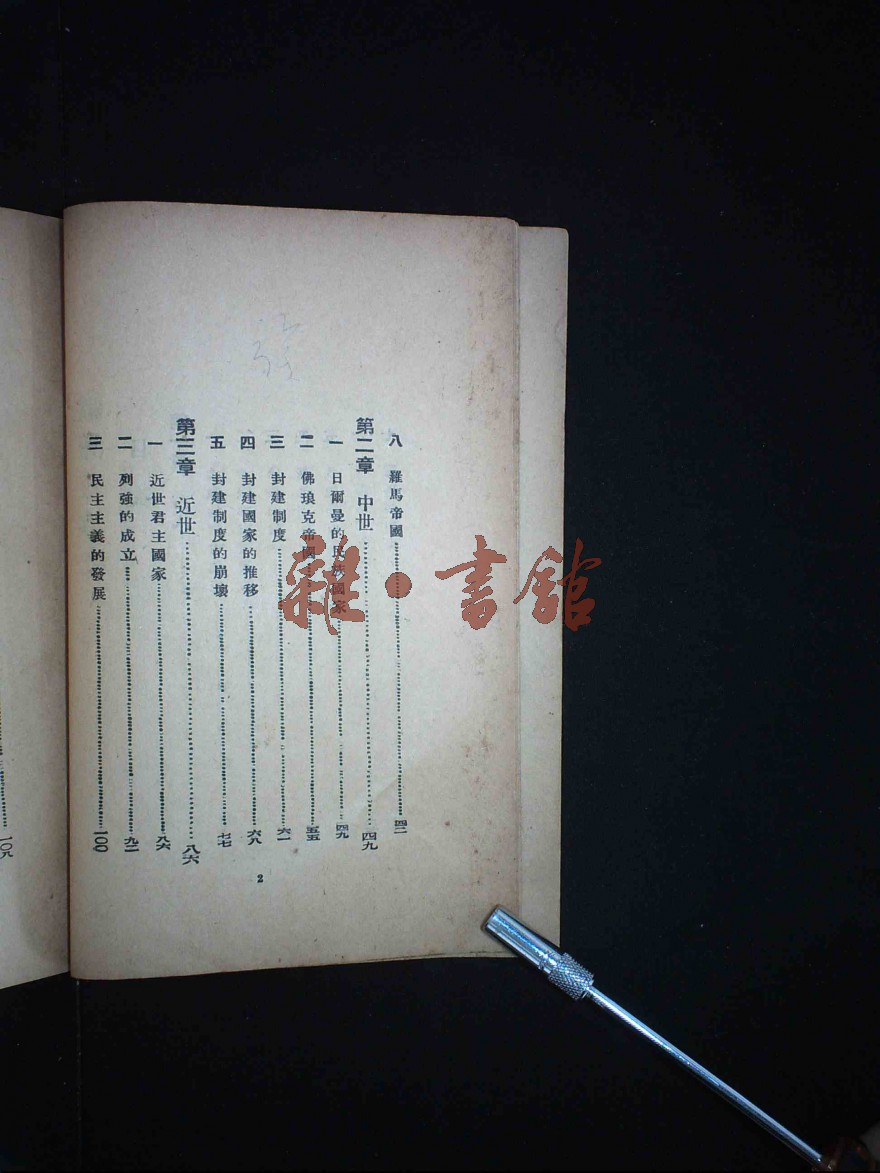 八 羅馬帝國 四二
第二章 中世 四九
一 日爾曼的民族國家 四九
二 佛琅克帝國 五五
三 封建制度 六一
四 封建國家的推移 六八
五 封建制度的崩壞 七七
第三章 近世 八六
一 近世君主國家 八六
二 列強的成立 九二
三 民主主義的發展 一〇〇
2
一〇九
雜·書館